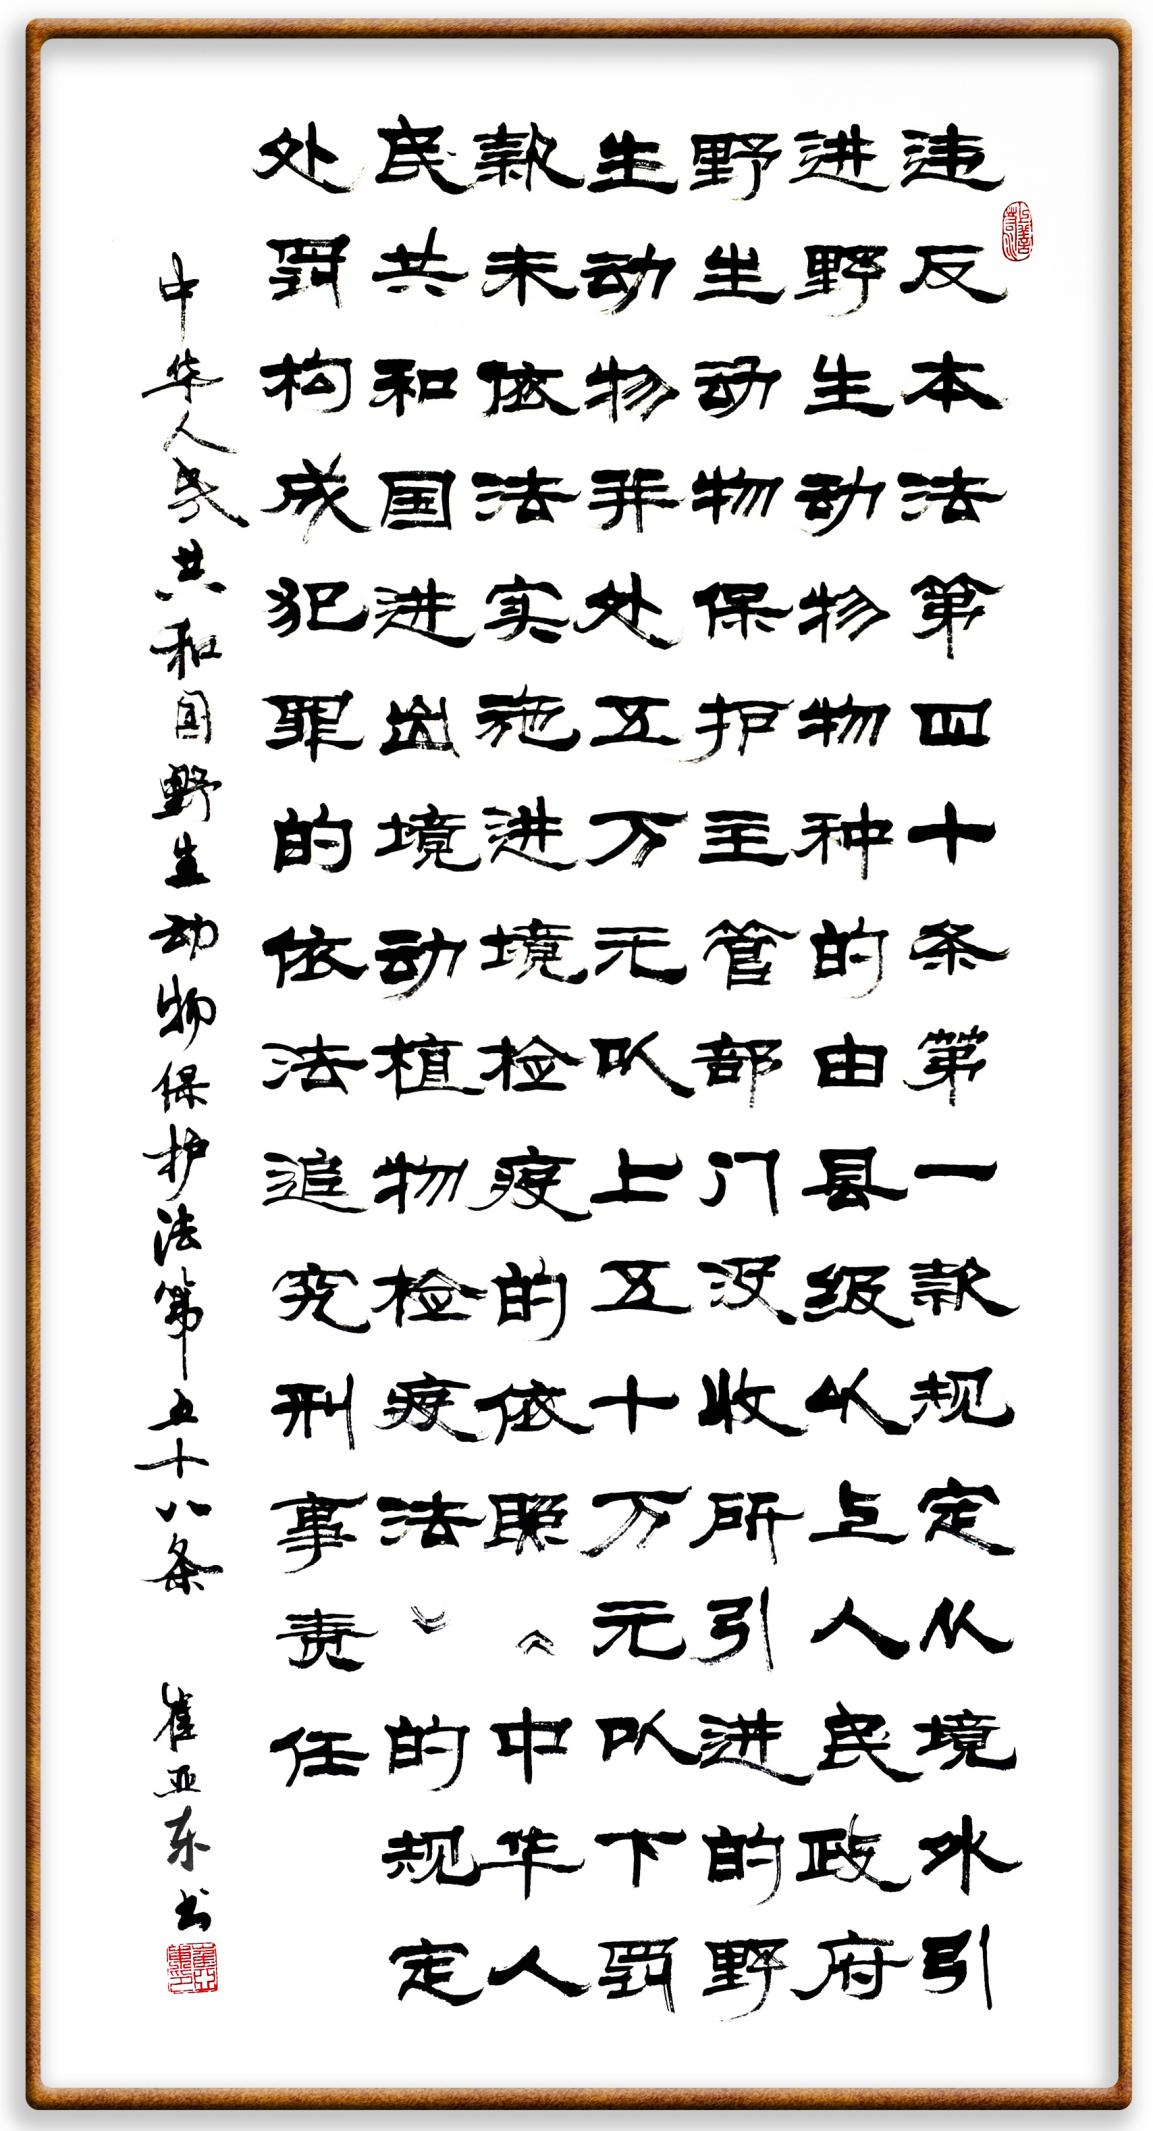 违反本法第四十条第一款规定从境外引
进野生动物物种的由县级以上人民政府
野生动物保护主管部门没收所引进的野
生动物并处五万元以上五十万元以下罚
款未依法实施进境检疫的依照《中华人
民共和国进出境动植物检疫法》的规定
处罚构成犯罪的依法追究刑事责任
中华人民共和国野生动物保护法第五十八条 崔亚东书
上善若水